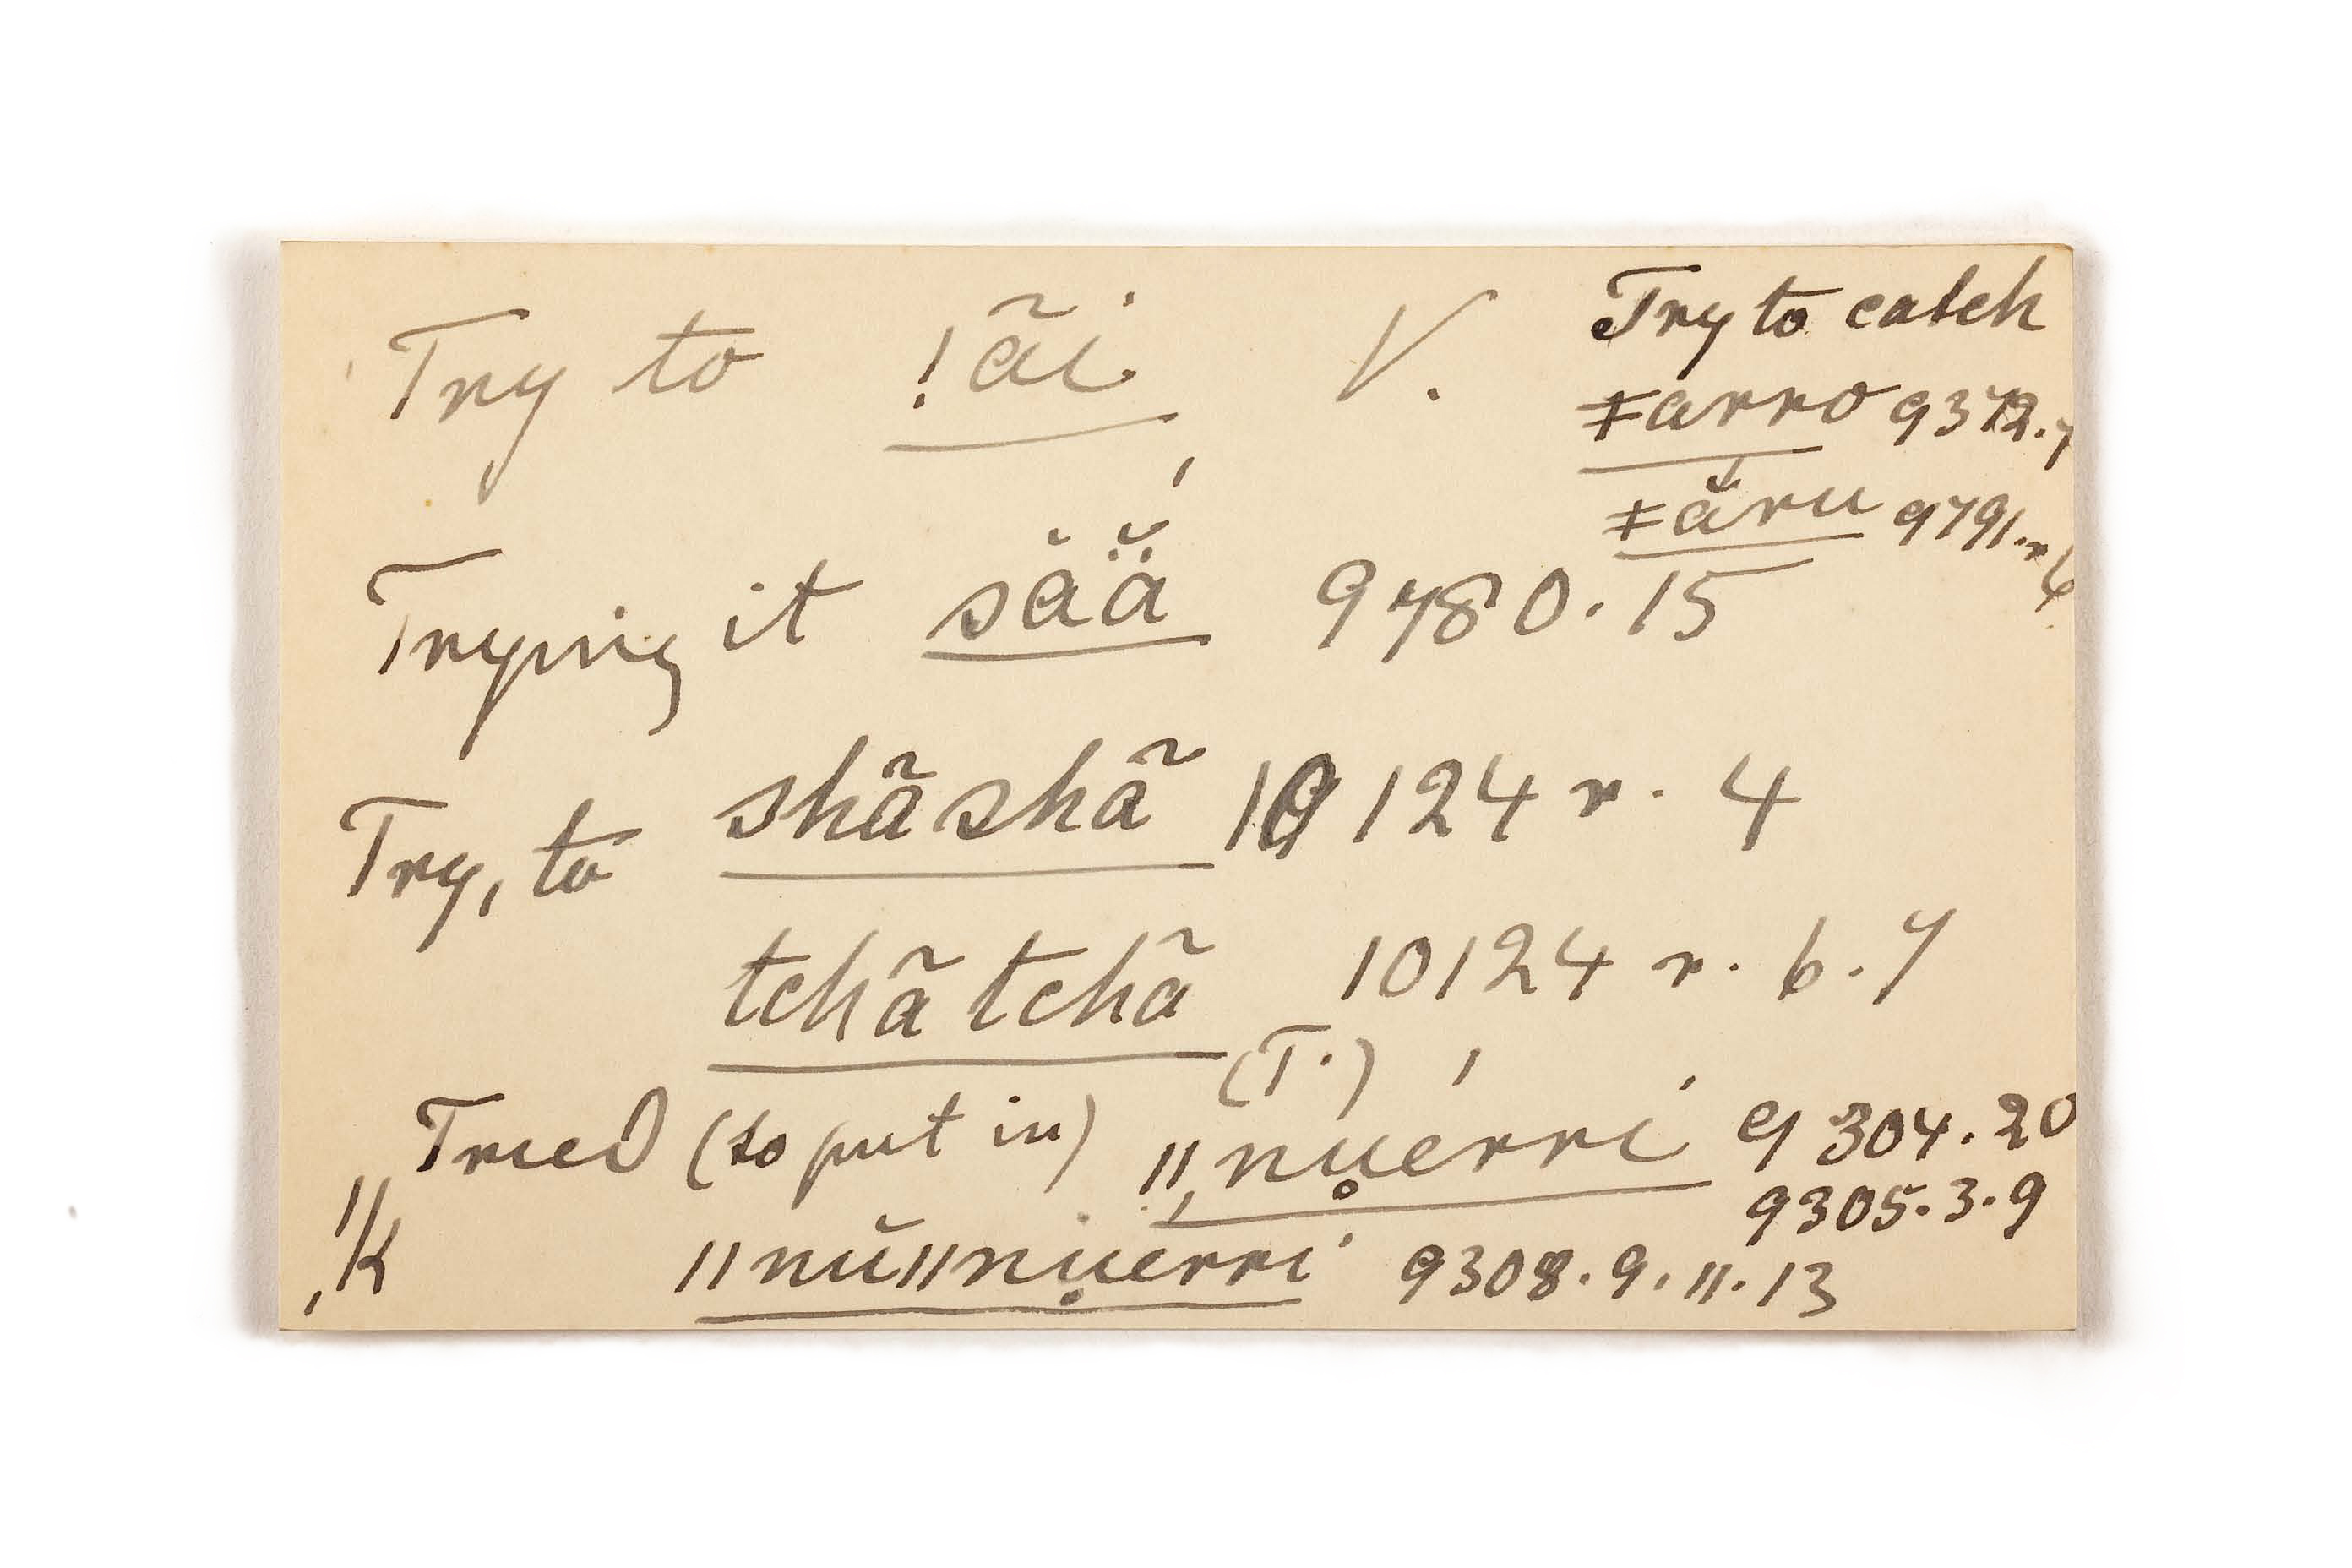 Try to !ãi V.
Try to catch
ǂarro 9372.7
ǂăru 9791.r 6
Trying it săä̆ 9780.15
Try, to shãshã 10124 r. 4
tchãtchã 10124 r. 6.7
(T.)
Tried (to put in) ǁnu̥érri 9304.20
9305.3.9
ǁK ǁnŭǁnu̥erri 9308.9.11.13